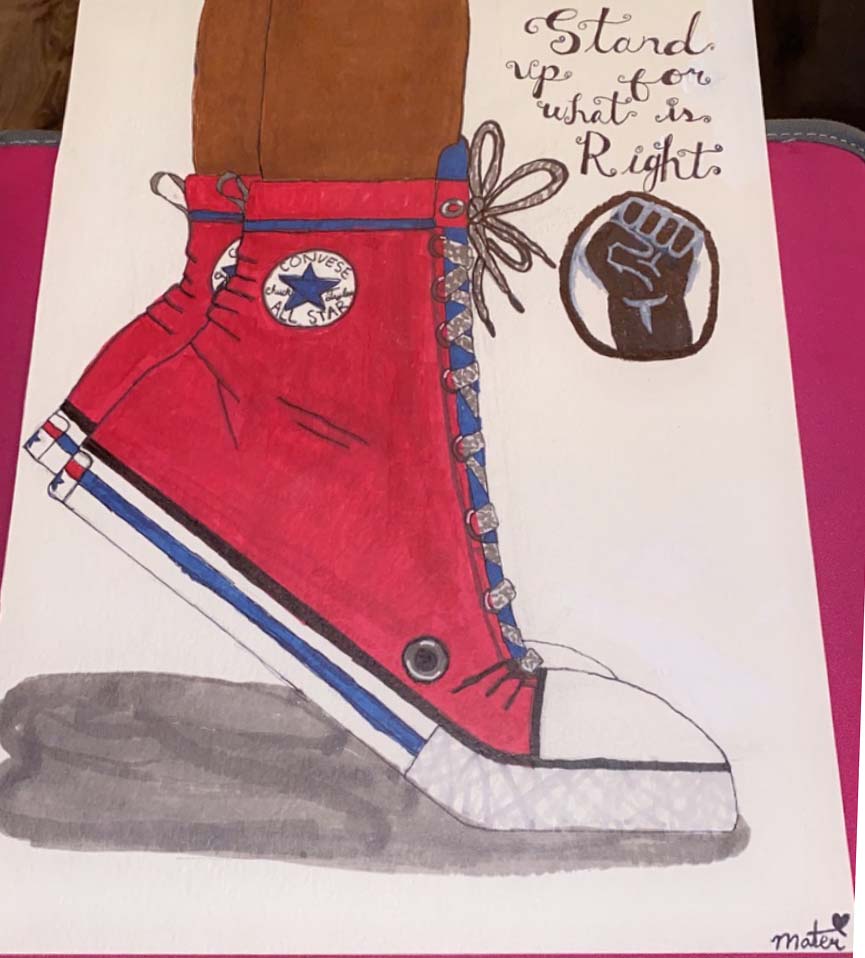 Stand
up for
what is
Right
CONVESE
chuck taylor
ALL STAR
Mater